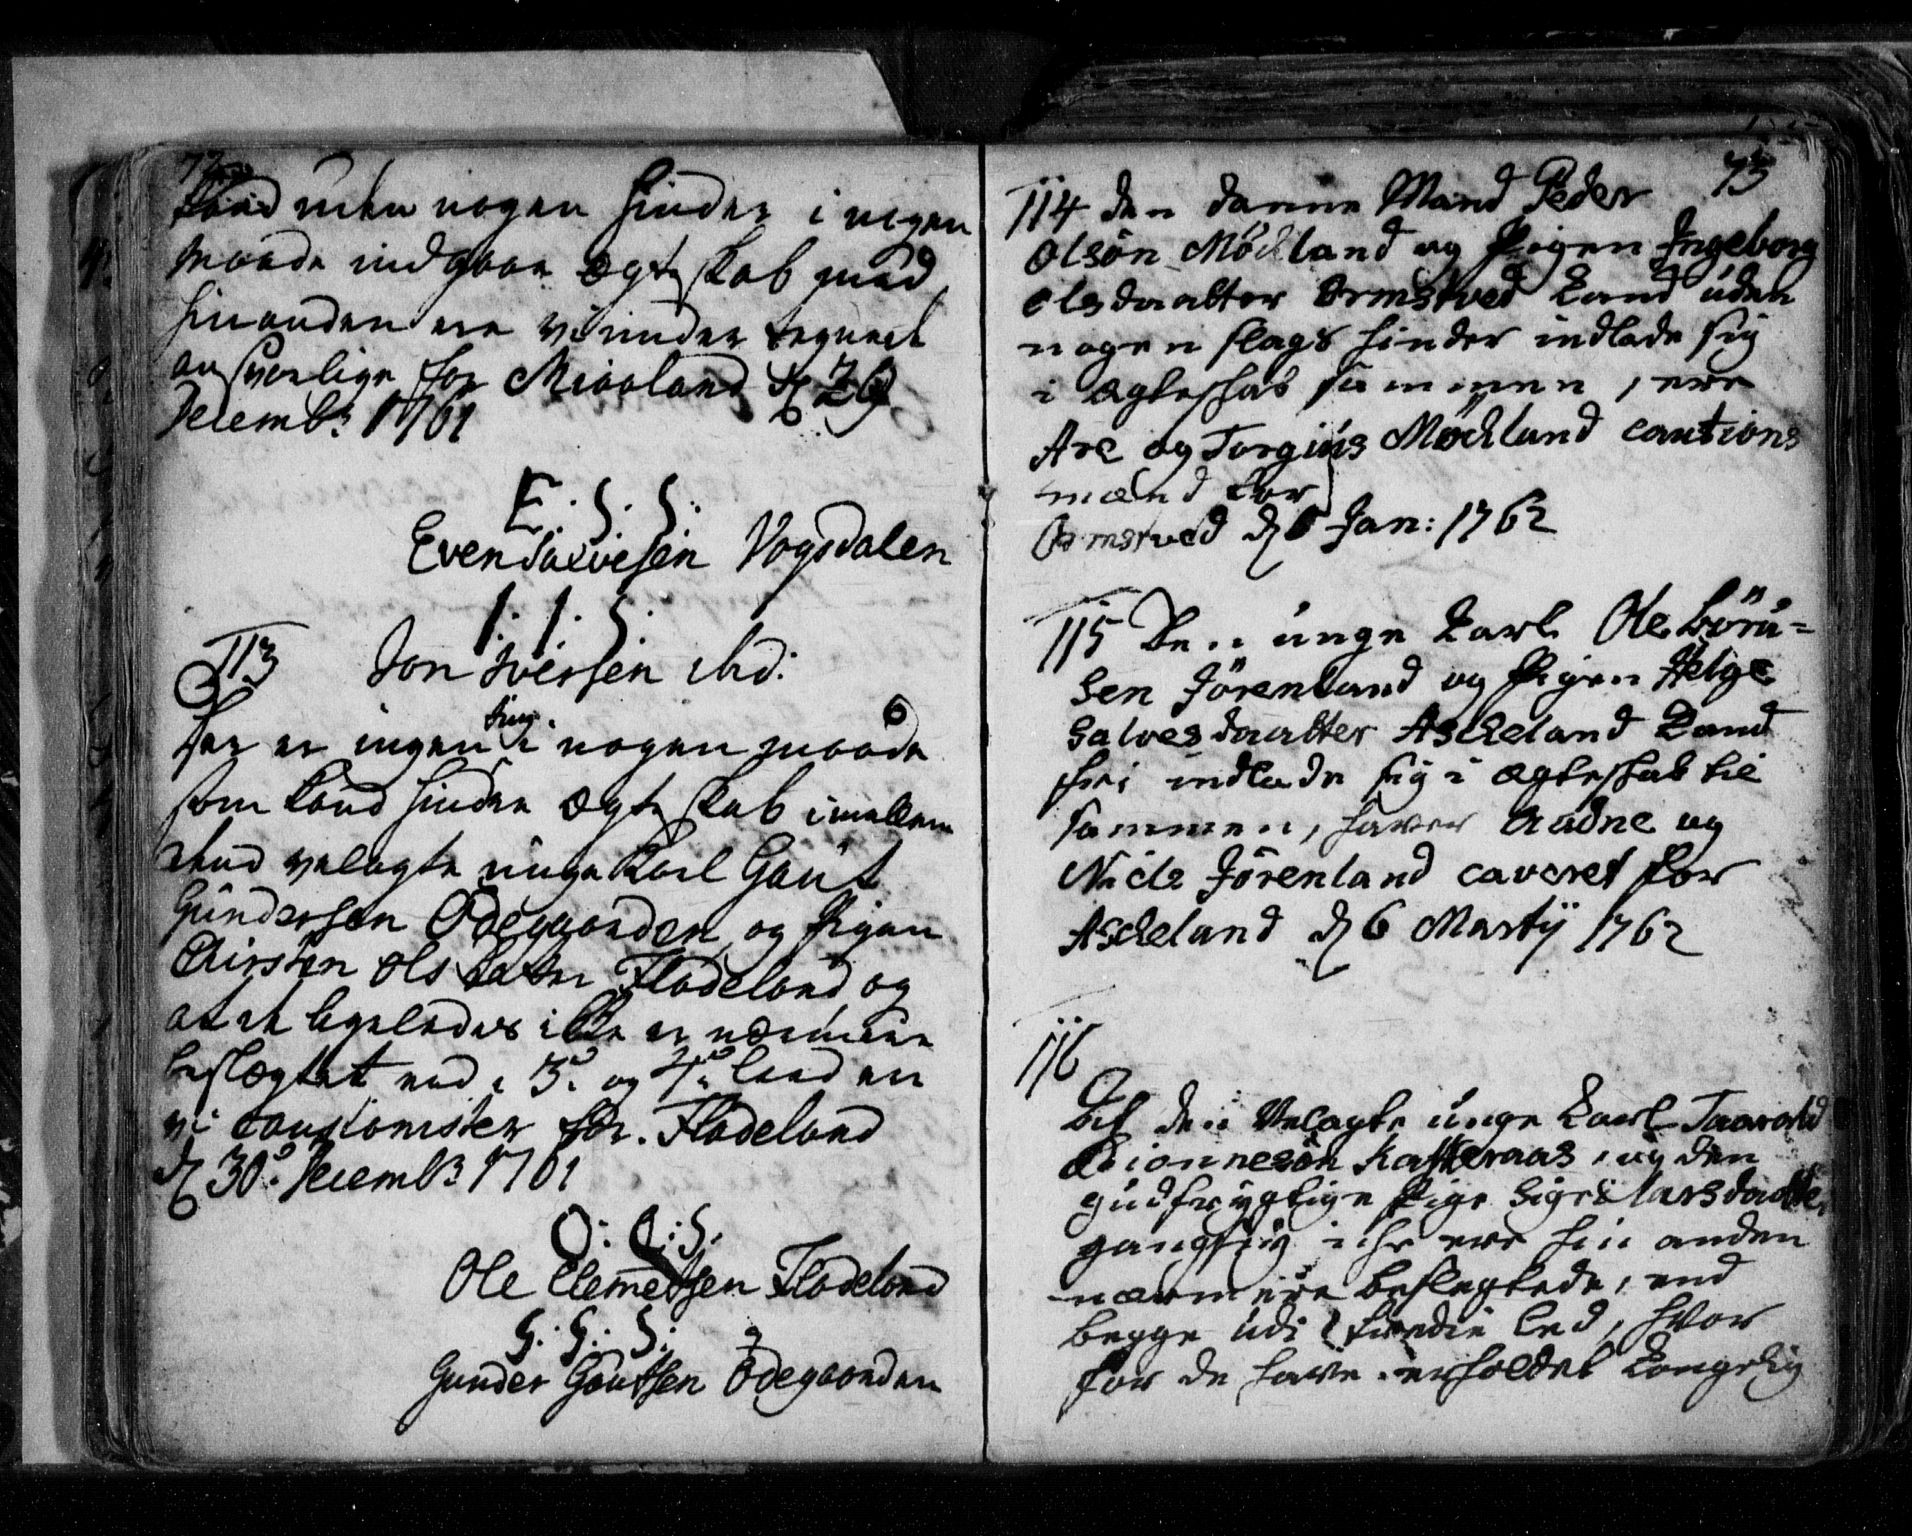 72
kand uden nogen hinder i nogen
maade indgaae Ægteskab med
hinanden ere vi under tegnede
ansvarlige for Mioeland d 29
Decembr: 1761
E: S: S:
Even Salvesen Vogsdalen
I: I: S:
113 Jon Iversen ibd:
ting.
Her er ingen i nogen maade
som kand hindre Ægte skab imellem
dend velagte unge Karl Gaut
Gundersen Ødegaarden og Pigen
Chirsten Ols datter Fladeland og
at de ligeledes ikke er nærmere
beslægtet end i 3die og 4de leed ere
vi Cautionister for. Fladeland
d 30: Decembr 1761
O: C: S:
Ole Clemetsen Fladeland
G: G: S:
Gunder Gautsen Ødegaarden
73
114 den danne Mand Peder
Olsøn Mödland og Pigen Ingeborg
olsdaatter Ormstved Kand uden
nogen slags hinder indlade sig
i Ægteskab sammen, ere
Are og Torgius Mödland cautions
mænd for
Ormstved d 6 Jan: 1762
115 De.. unge Karl Ole Börü=
sen Jörenland og Pigen Helge
Salvesdaatter Askeland Kand
frei indlade sig i Ægteskab til
sammen, haver Aadne og
Niels Jörenland caveret for
Askeland d 6 Martÿ 1762
116
At den Velagte unge Karl Taarald
Biønnesön Kafteraas, og den
gudfrygtige Pige Sigrü Larsdaatter
gangfuig iche ere hin anden
nærmere beslegtede, end
begge udi tredie led, hvor
for de have erholdet Kongelig